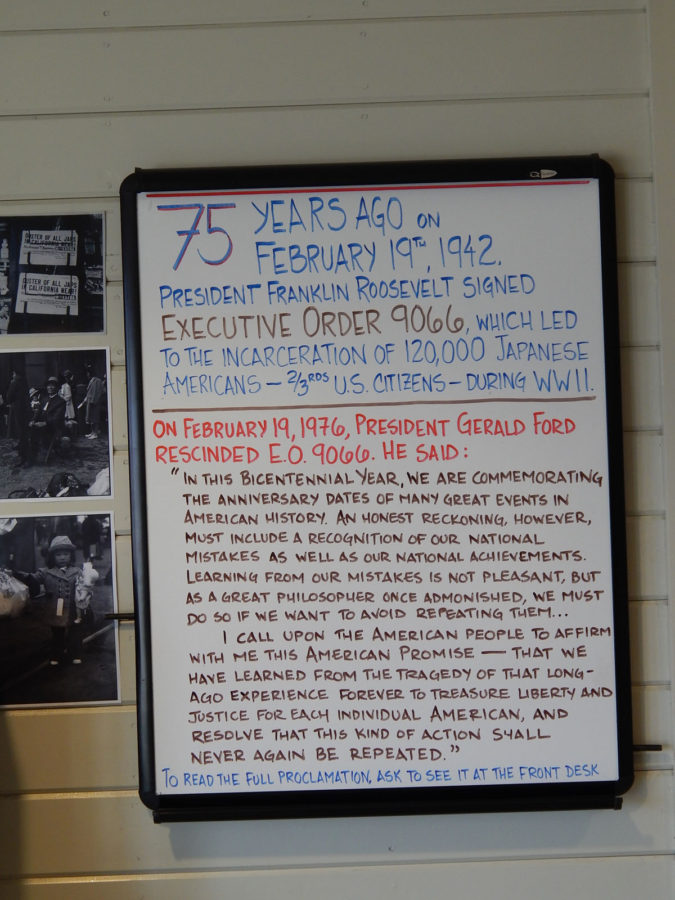 75 YEARS AGO ON
FEBRUARY 19TH, 1942.
PRESIDENT FRANKLIN ROOSEVELT SIGNED
EXECUTIVE ORDER 9066, WHICH LED
TO THE INCARCERATION OF 120,000 JAPANESE
AMERICANS — 2/3RDS U.S. CITIZENS — DURING WWII.
ON FEBRUARY 19, 1976, PRESIDENT GERALD FORD
RESCINDED E.O. 9066. HE SAID:
"IN THIS BICENTENNIAL YEAR, WE ARE COMMEMORATING
THE ANNIVERSARY DATES OF MANY GREAT EVENTS IN
AMERICAN HISTORY. AN HONEST RECKONING, HOWEVER,
MUST INCLUDE A RECOGNITION OF OUR NATIONAL
MISTAKES AS WELL AS OUR NATIONAL ACHIEVEMENTS.
LEARNING FROM OUR MISTAKES IS NOT PLEASANT, BUT
AS A GREAT PHILOSOPHER ONCE ADMONISHED, WE MUST
DO SO IF WE WANT TO AVOID REPEATING THEM...
I CALL UPON THE AMERICAN PEOPLE TO AFFIRM
WITH ME THIS AMERICAN PROMISE — THAT WE
HAVE LEARNED FROM THE TRAGEDY OF THAT LONG-
AGO EXPERIENCE FOREVER TO TREASURE LIBERTY AND
JUSTICE FOR EACH INDIVIDUAL AMERICAN, AND
RESOLVE THAT THIS KIND OF ACTION SHALL
NEVER AGAIN BE REPEATED."
TO READ THE FULL PROCLAMATION, ASK TO SEE IT AT THE FRONT DESK
OUSTER OF ALL JAPS
IN CALIFORNIA NEAR!
OUSTER OF ALL JAPS
IN CALIFORNIA NEAR!